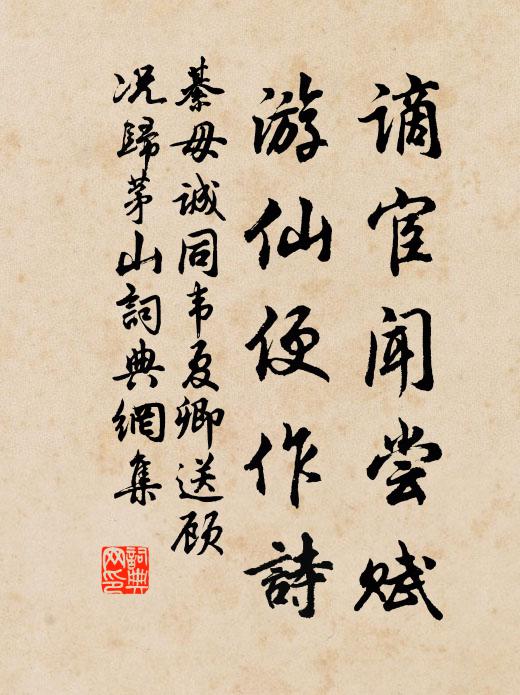 谪宦闻尝赋
游仙便作詩
綦毋诚同韦夏卿送顾
况歸茅山詞典網集
詞典网印